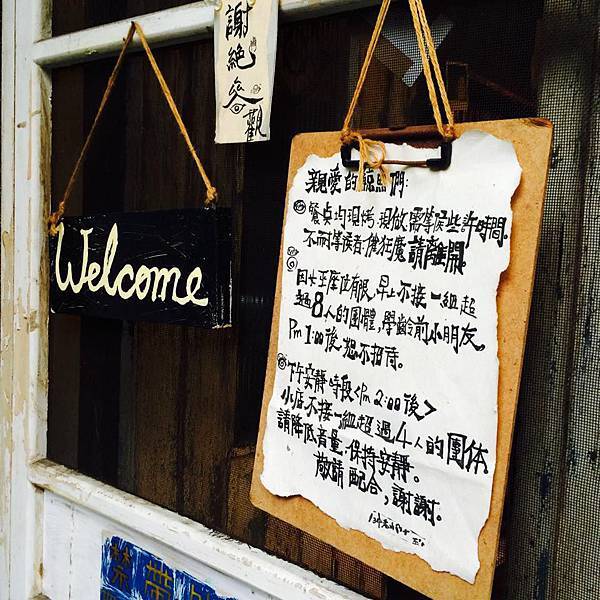 謝絕參觀
Welcome
親愛的貓奴們:
餐桌均現烤、現做需等候些許時間.
不耐等候者.備狂魔請離開.
因女王座位有限,早上不接一組超
過8人的團體,學齡前小朋友.
Pm 1:00後.恕不招待.
下午安靜時段<Pm 2:00後>
小店不接一組超過4人的團体
請降低音量,保持安靜。
敬請配合,謝謝.
禁帶